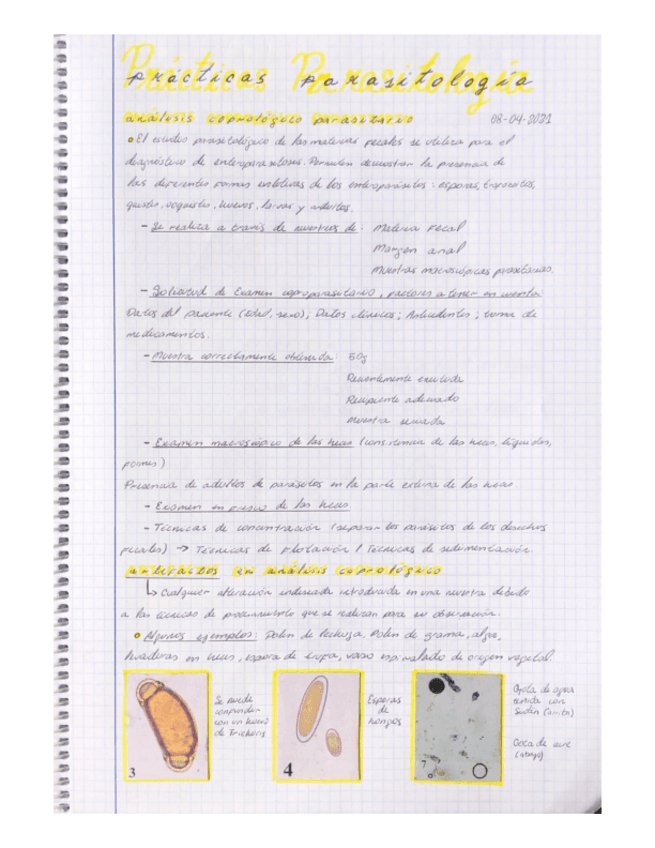 Prácticas Parasitología
análisis coprológico parasitario 08-04-2021
El estudio parasitológico de las materias fecales se utiliza para el
diagnóstico de enteroparasitosis. Permiten demostrar la presencia de
las diferentes formas evolutivas de los enteroparásitos: esporas, trofozoitos,
quistes, ooquistes, huevos, larvas y adultos.
- Se realiza a través de muestras de: Materia Fecal
Margen anal
Muestras macroscópicas parasitarias.
- Solicitud de Examen coproparasitario, factores a tener en cuenta:
Datos del paciente (Edad, sexo); Datos clínicos; Antecedentes; toma de
medicamentos.
- Muestra correctamente obtenida: 50g
Recientemente emitida
Recipiente adecuado
Muestra seriada
- Examen macroscópico de las heces (consistencia de las heces, líquidas,
formes)
Presencia de adultos de parásitos en la parte externa de las heces.
- Examen en fresco de las heces
- Técnicas de concentración (separar los parásitos de los desechos
fecales) → Técnicas de flotación / Técnicas de sedimentación.
artefactos en análisis coprológico
↳ Cualquier alteración indeseada introducida en una muestra debido
a las técnicas de procesamiento que se realizan para su observación.
Algunos ejemplos: Polen de lechuga, Polen de grama, alga,
levaduras en heces, espora de trufa, vaso espiralado de origen vegetal.
Se puede
confundir
con un huevo
de Trichuris
3
Esporas
de
hongos
4
Gota de agua
teñida con
Sudán (arriba)
Gota de aire
(abajo)
7